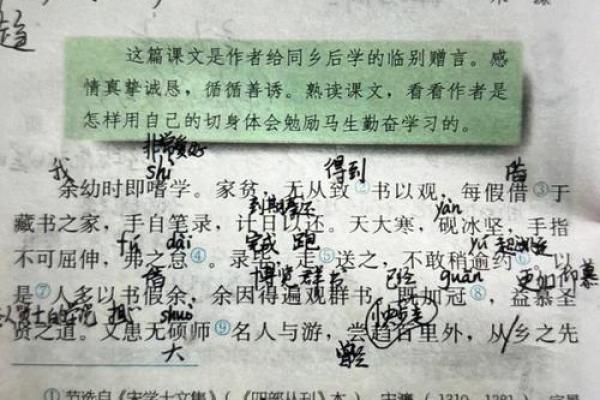 趋
这篇课文是作者给同乡后学的临别赠言。感
情真挚诚恳，循循善诱。熟读课文，看看作者是
怎样用自己的切身体会勉励马生勤奋学习的。
非常爱好
我 shì 得到 借
余幼时即嗜学。家贫，无从致②书以观，每假借③于
到期归还 yàn
藏书之家，手自笔录，计日以还。天大寒，砚冰坚，手指
fú dài 完成 跑 yú 超过
不可屈伸，弗之怠④。录毕，走⑤送之，不敢稍逾约⑥。以
借 博览群书 已经 guān 更加仰慕
是⑦人多以书假余，余因得遍观群书。既加冠⑧，益慕圣
担心 shuò 小步走
贤之道。又患无硕师⑨名人与游，尝趋百里外，从乡之先
大 曾经
①节选自《宋学士文集》（《四部丛刊》本）。宋濂